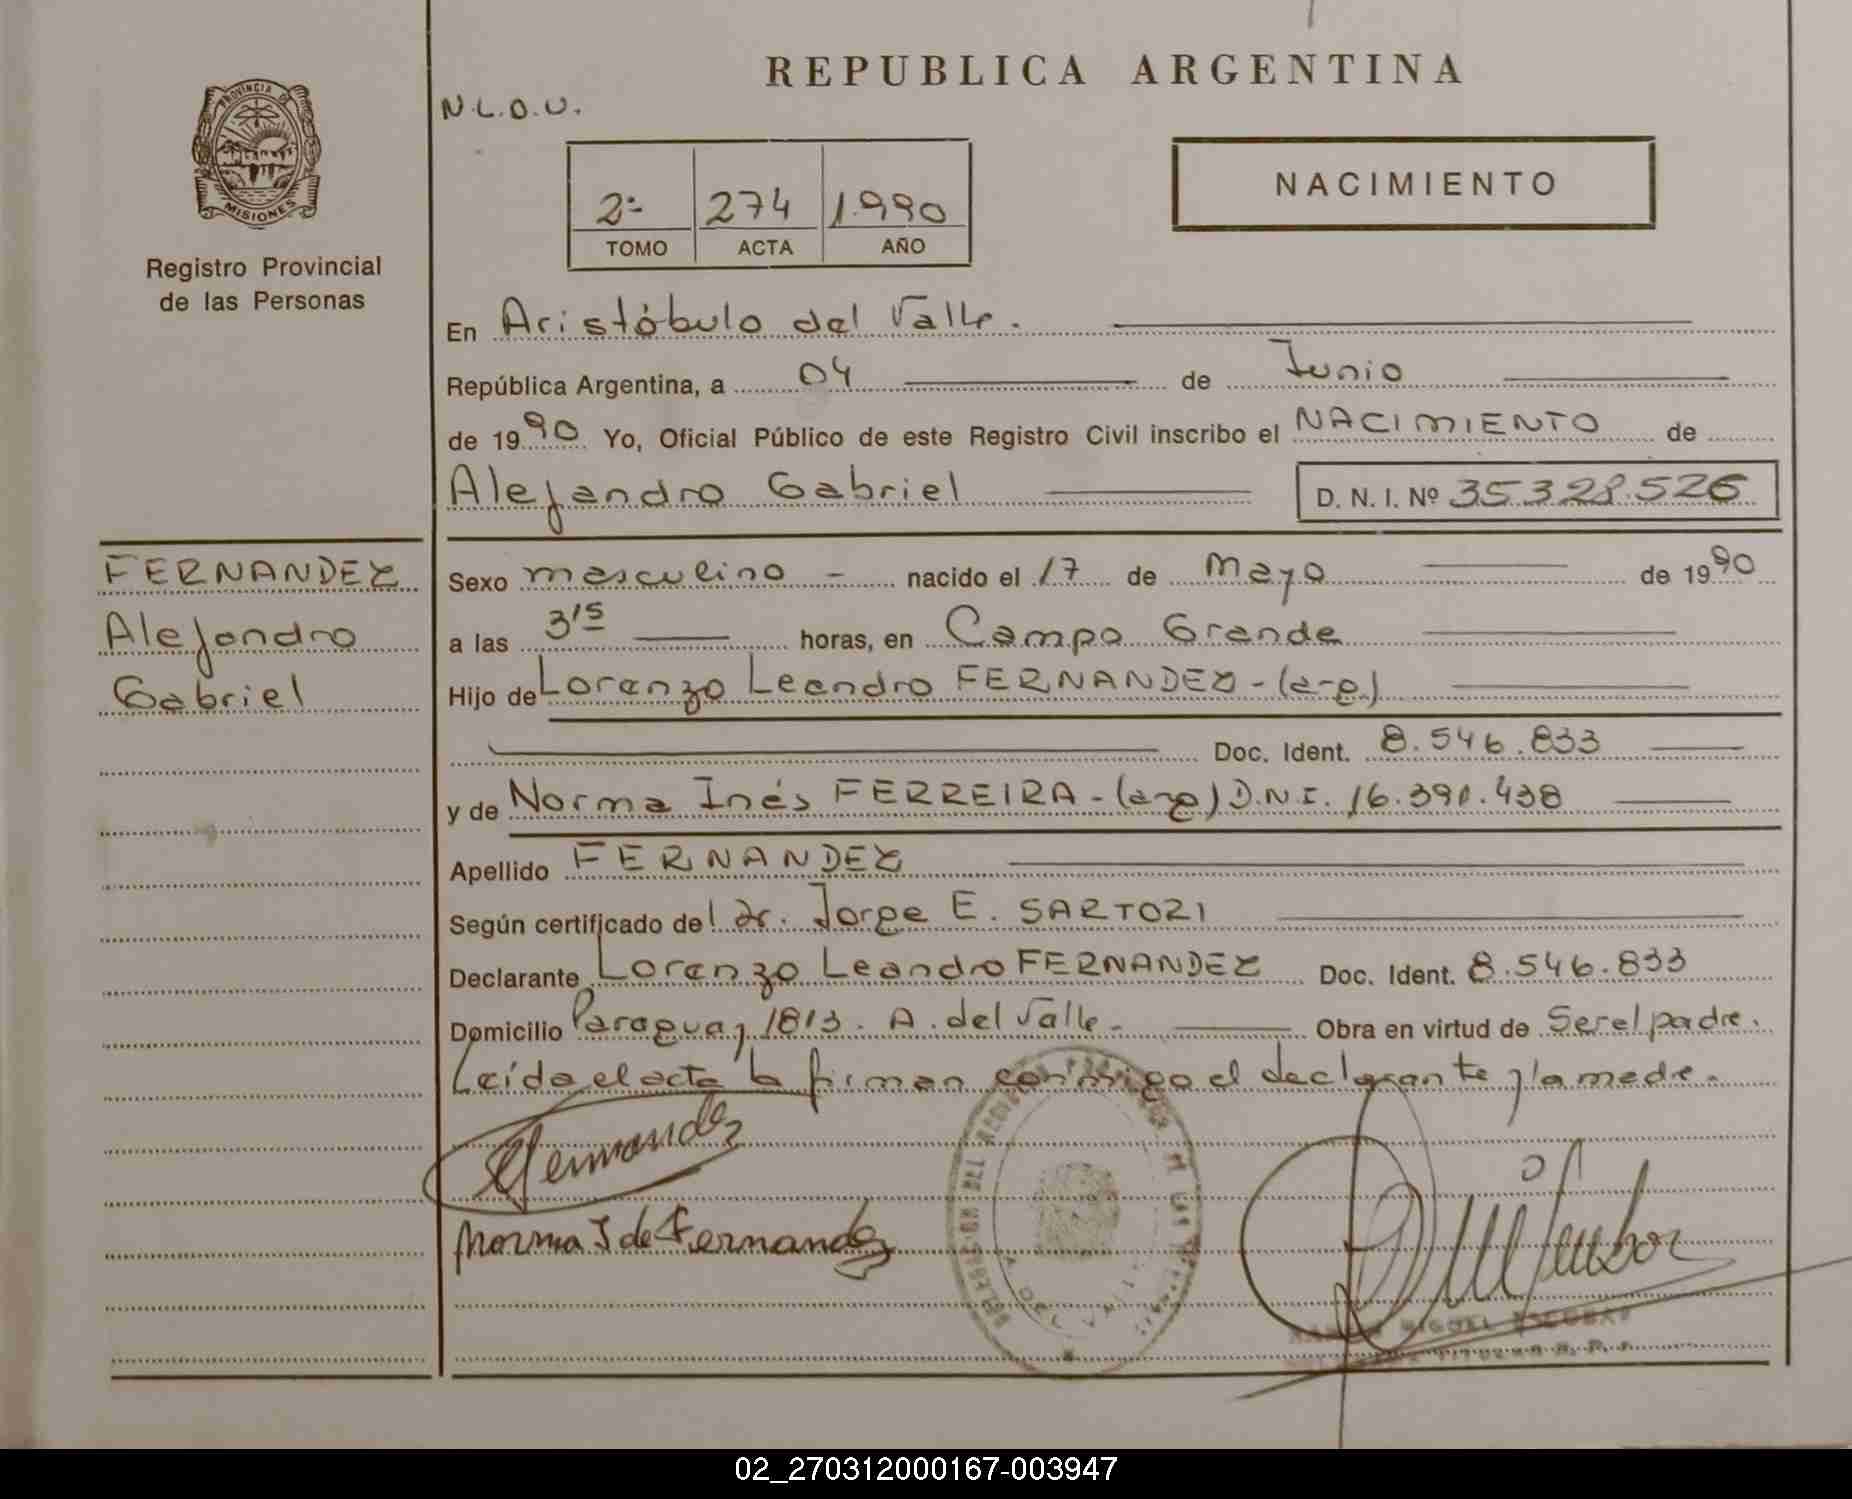 REPUBLICA ARGENTINA
N.L.O.U.
PROVINCIA DE
MISIONES
Registro Provincial
de las Personas
2º 274 1.990
TOMO ACTA AÑO
NACIMIENTO
En Aristóbulo del Valle.
República Argentina, a 04 de Junio
de 1990 Yo, Oficial Público de este Registro Civil inscribo el NACIMIENTO de
Alejandro Gabriel D. N. I. Nº 35.328.526
FERNANDEZ
Alejandro
Gabriel
Sexo masculino - nacido el 17 de Mayo de 1990
a las 3¹⁵ horas, en Campo Grande
Hijo de Lorenzo Leandro FERNANDEZ - (arg)
Doc. Ident. 8.546.833
y de Norma Inés FERREIRA - (arg) D.N.I. 16.391.438
Apellido FERNANDEZ
Según certificado del dr. Jorge E. SARTORI
Declarante Lorenzo Leandro FERNANDEZ Doc. Ident. 8.546.833
Domicilio Paraguay 1813. A. del Valle - Obra en virtud de Ser el padre.
Leída el acta la firman conmigo el declarante y la madre.
Fernandez
Norma I de Fernandez
MIGUEL ESCOBAR
TITULAR R. P. P.
02_270312000167-003947